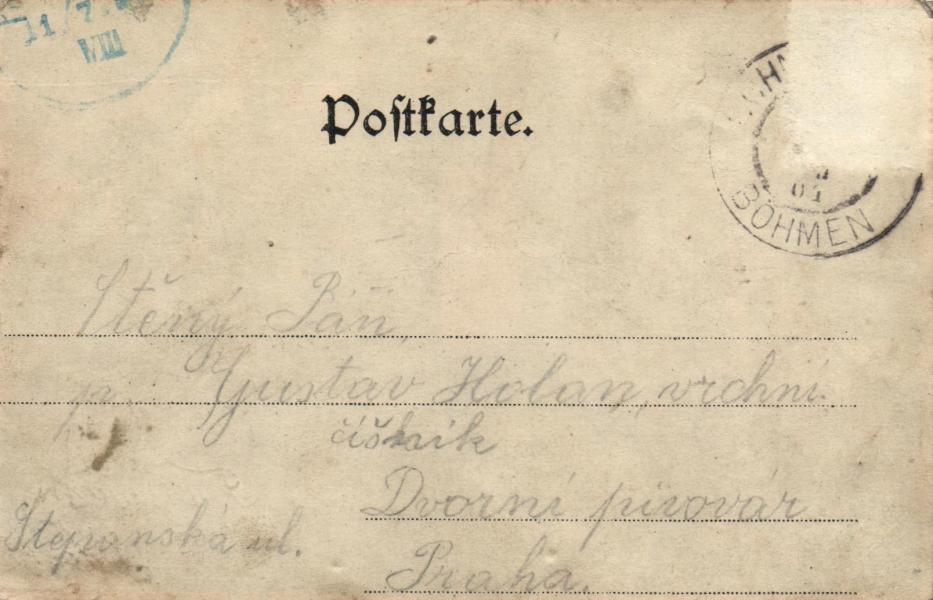 11/7
VIII
Postkarte.
04
BÖHMEN
Ctěný Pán,
p. Gustav Holan, vrchní
číšník
Dvorní pivovár
Štěpánská ul.
Praha.